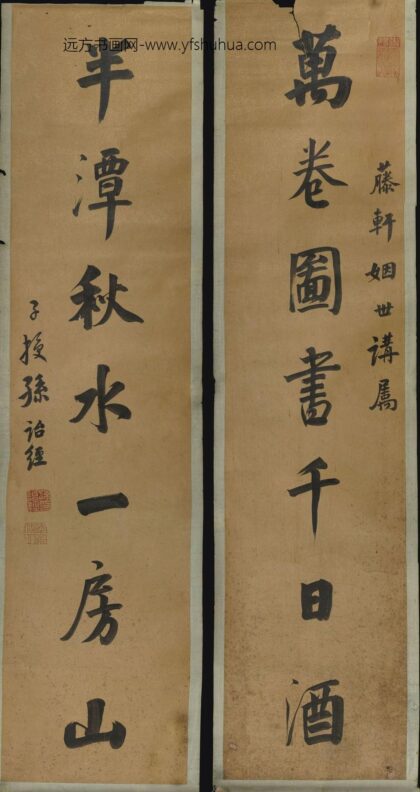 远方书画网-www.yfshuhua.com
藤軒姻世講屬
萬卷圖書千日酒
半潭秋水一房山
子授孫詒經